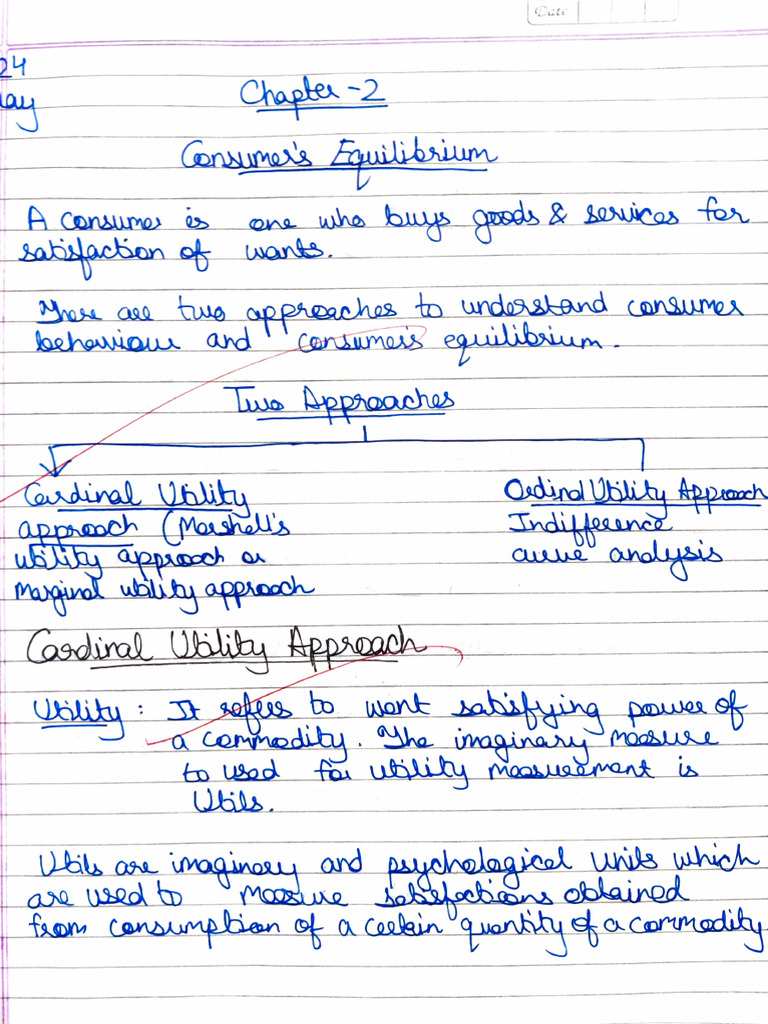 Date
24
ay
Chapter - 2
Consumer's Equilibrium
A consumer is one who buys goods & services for
satisfaction of wants.
There are two approaches to understand consumer
behaviour and consumer's equilibrium.
Two Approaches
Cardinal Utility
approach (Marshell's
utility approach or
marginal utility approach
Ordinal Utility Approach
Indifference
curve analysis
Cardinal Utility Approach
Utility : It refers to want satisfying power of
a commodity. The imaginary measure
to used for utility measurement is
Utils.
Utils are imaginary and psychological units which
are used to measure satisfactions obtained
from consumption of a certain quantity of a commodity